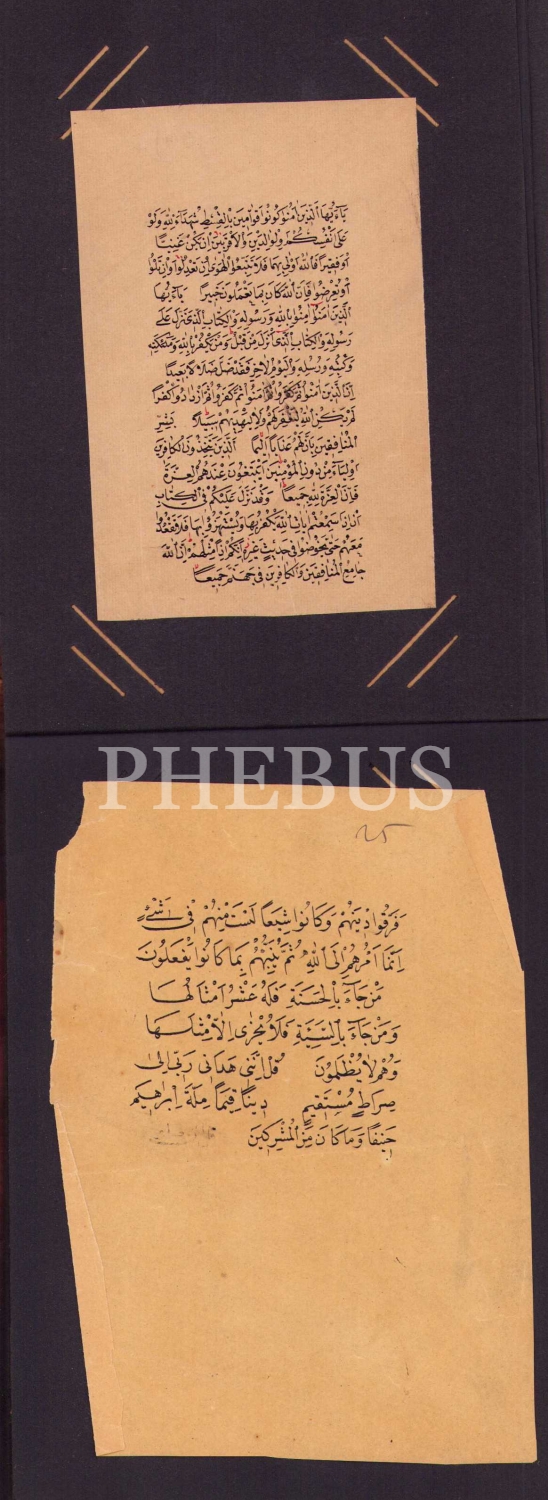 يَآءَيُّهَا الَّذِينَ اٰمَنُوا كُونُوا قَوَّامِينَ بِالْقِسْطِ شُهَدَآءَ لِلّٰهِ وَلَوْ
عَلٰى اَنْفُسِكُمْ اَوِ الْوَالِدَيْنِ وَالْاَقْرَبِينَ اِنْ يَكُنْ غَنِيًّا
اَوْ فَقِيرًا فَاللّٰهُ اَوْلٰى بِهِمَا فَلَا تَتَّبِعُوا الْهَوٰى اَنْ تَعْدِلُوا وَاِنْ تَلْوُوا
اَوْ تُعْرِضُوا فَاِنَّ اللّٰهَ كَانَ بِمَا تَعْمَلُونَ خَبِيرًا يَآءَيُّهَا
الَّذِينَ اٰمَنُوا اٰمِنُوا بِاللّٰهِ وَرَسُولِهِ وَالْكِتَابِ الَّذِى نَزَّلَ عَلٰى
رَسُولِهِ وَالْكِتَابِ الَّذِى اَنْزَلَ مِنْ قَبْلُ وَمَنْ يَكْفُرْ بِاللّٰهِ وَمَلٰئِكَتِهِ
وَكُتُبِهِ وَرُسُلِهِ وَالْيَوْمِ الْاٰخِرِ فَقَدْ ضَلَّ ضَلَالًا بَعِيدًا
اِنَّ الَّذِينَ اٰمَنُوا ثُمَّ كَفَرُوا ثُمَّ اٰمَنُوا ثُمَّ كَفَرُوا ثُمَّ ازْدَادُوا كُفْرًا
لَمْ يَكُنِ اللّٰهُ لِيَغْفِرَ لَهُمْ وَلَا لِيَهْدِيَهُمْ سَبِيلًا بَشِّرِ
الْمُنَافِقِينَ بِاَنَّ لَهُمْ عَذَابًا اَلِيمًا الَّذِينَ يَتَّخِذُونَ الْكَافِرِينَ
اَوْلِيَآءَ مِنْ دُونِ الْمُؤْمِنِينَ اَيَبْتَغُونَ عِنْدَهُمُ الْعِزَّةَ
فَاِنَّ الْعِزَّةَ لِلّٰهِ جَمِيعًا وَقَدْ نَزَّلَ عَلَيْكُمْ فِى الْكِتَابِ
اَنْ اِذَا سَمِعْتُمْ اٰيَاتِ اللّٰهِ يُكْفَرُ بِهَا وَيُسْتَهْزَؤُ بِهَا فَلَا تَقْعُدُوا
مَعَهُمْ حَتّٰى يَخُوضُوا فِى حَدِيثٍ غَيْرِهِ اِنَّكُمْ اِذًا مِثْلُهُمْ اِنَّ اللّٰهَ
جَامِعُ الْمُنَافِقِينَ وَالْكَافِرِينَ فِى جَهَنَّمَ جَمِيعًا
PHEBUS
٢٥
فَرَّقُوا دِينَهُمْ وَكَانُوا شِيَعًا لَسْتَ مِنْهُمْ فِى شَىْءٍ
اِنَّمَا اَمْرُهُمْ اِلَى اللّٰهِ ثُمَّ يُنَبِّئُهُمْ بِمَا كَانُوا يَفْعَلُونَ
مَنْ جَآءَ بِالْحَسَنَةِ فَلَهُ عَشْرُ اَمْثَالِهَا
وَمَنْ جَآءَ بِالسَّيِّئَةِ فَلَا يُجْزٰى اِلَّا مِثْلَهَا
وَهُمْ لَا يُظْلَمُونَ قُلْ اِنَّنِى هَدَانِى رَبِّى اِلٰى
صِرَاطٍ مُسْتَقِيمٍ دِينًا قِيَمًا مِلَّةَ اِبْرٰهِيمَ
حَنِيفًا وَمَا كَانَ مِنَ الْمُشْرِكِينَ